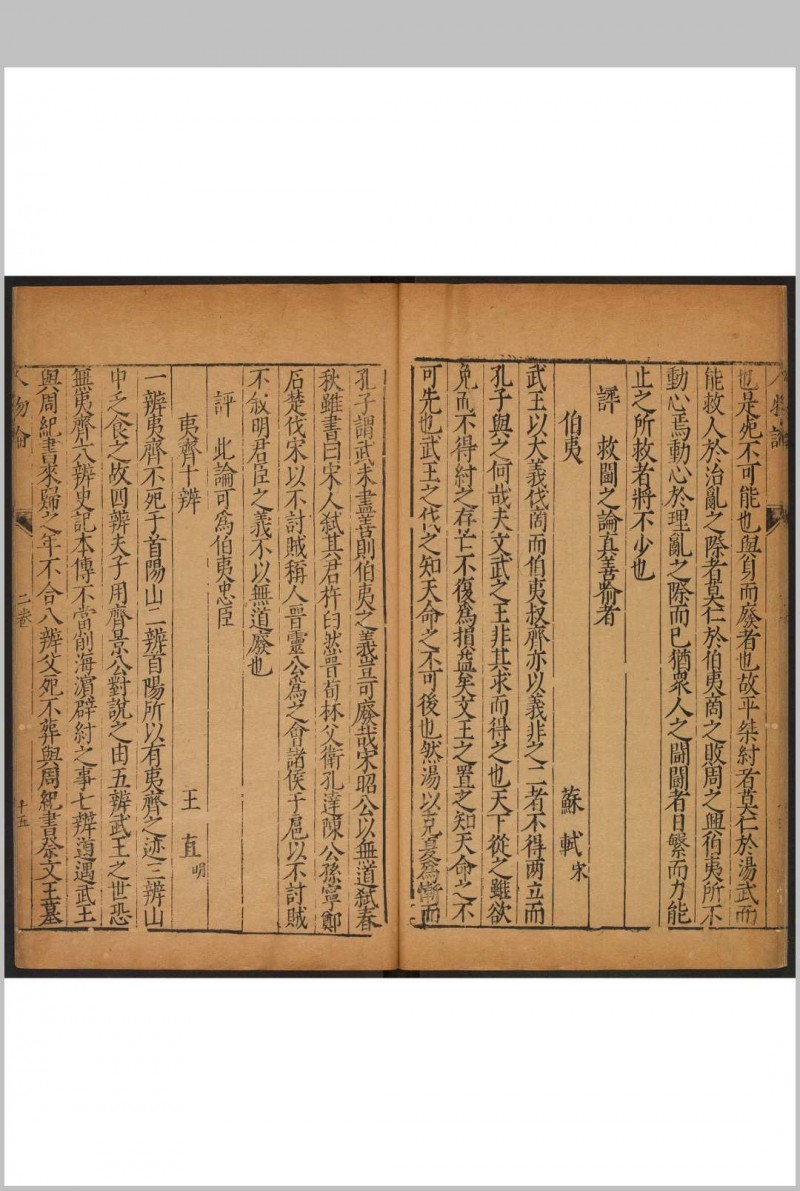 也是死不可能也與貟而廢者也故平桀紂者莫仁於湯武而
能救人於治亂之際者莫仁於伯夷商之敗周之興伯夷所不
動心焉動心於理亂之際而已猶衆人之鬪鬪者日繁而力能
止之所救者將不少也
評 救鬪之論真善喻者
伯夷 蘇軾宋
武王以大義伐商而伯夷叔齊亦以義非之二者不得两立而
孔子與之何哉夫文武之王非其求而得之也天下從之雖欲
免而不得紂之存亡不復爲損益矣文王之置之知天命之不
可先也武王之伐之知天命之不可後也然湯以克夏爲慚而
孔子謂武未盡善則伯夷之義豈可廢哉宋昭公以無道弑春
秋雖書曰宋人弑其君杵臼然晉荀林父衛孔達陳公孫寧鄭
石楚伐宋以不討賊稱人晉靈公爲之會諸侯于扈以不討賊
不敘明君臣之義不以無道廢也
評 此論可爲伯夷忠臣
夷齊十辨 王直明
一辨夷齊不死于首陽山二辨首陽所以有夷齊之迹三辨山
中乏食之故四辨夫子用齊景公對說之由五辨武王之世恐
無夷齊六辨史記本傳不當削海濵辟紂之事七辨道遇武王
與周紀書來歸之年不合八辨父死不葬與周紀書祭文王墓
人物論 二卷 十五